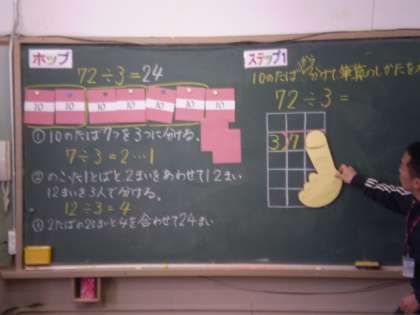 ホップ
72÷3=24
10 10 10 10 10 10 10
①10のたば7つを3つに分ける。
7÷3=2…1
②のこった1たばと、2まいをあわせて12まい
12まいを3人で分ける。
12÷3=4
③2たばの20まいと4を合わせて24まい
ステップ1
10のたば 分けて筆算のしかたを
72÷3=
3)7